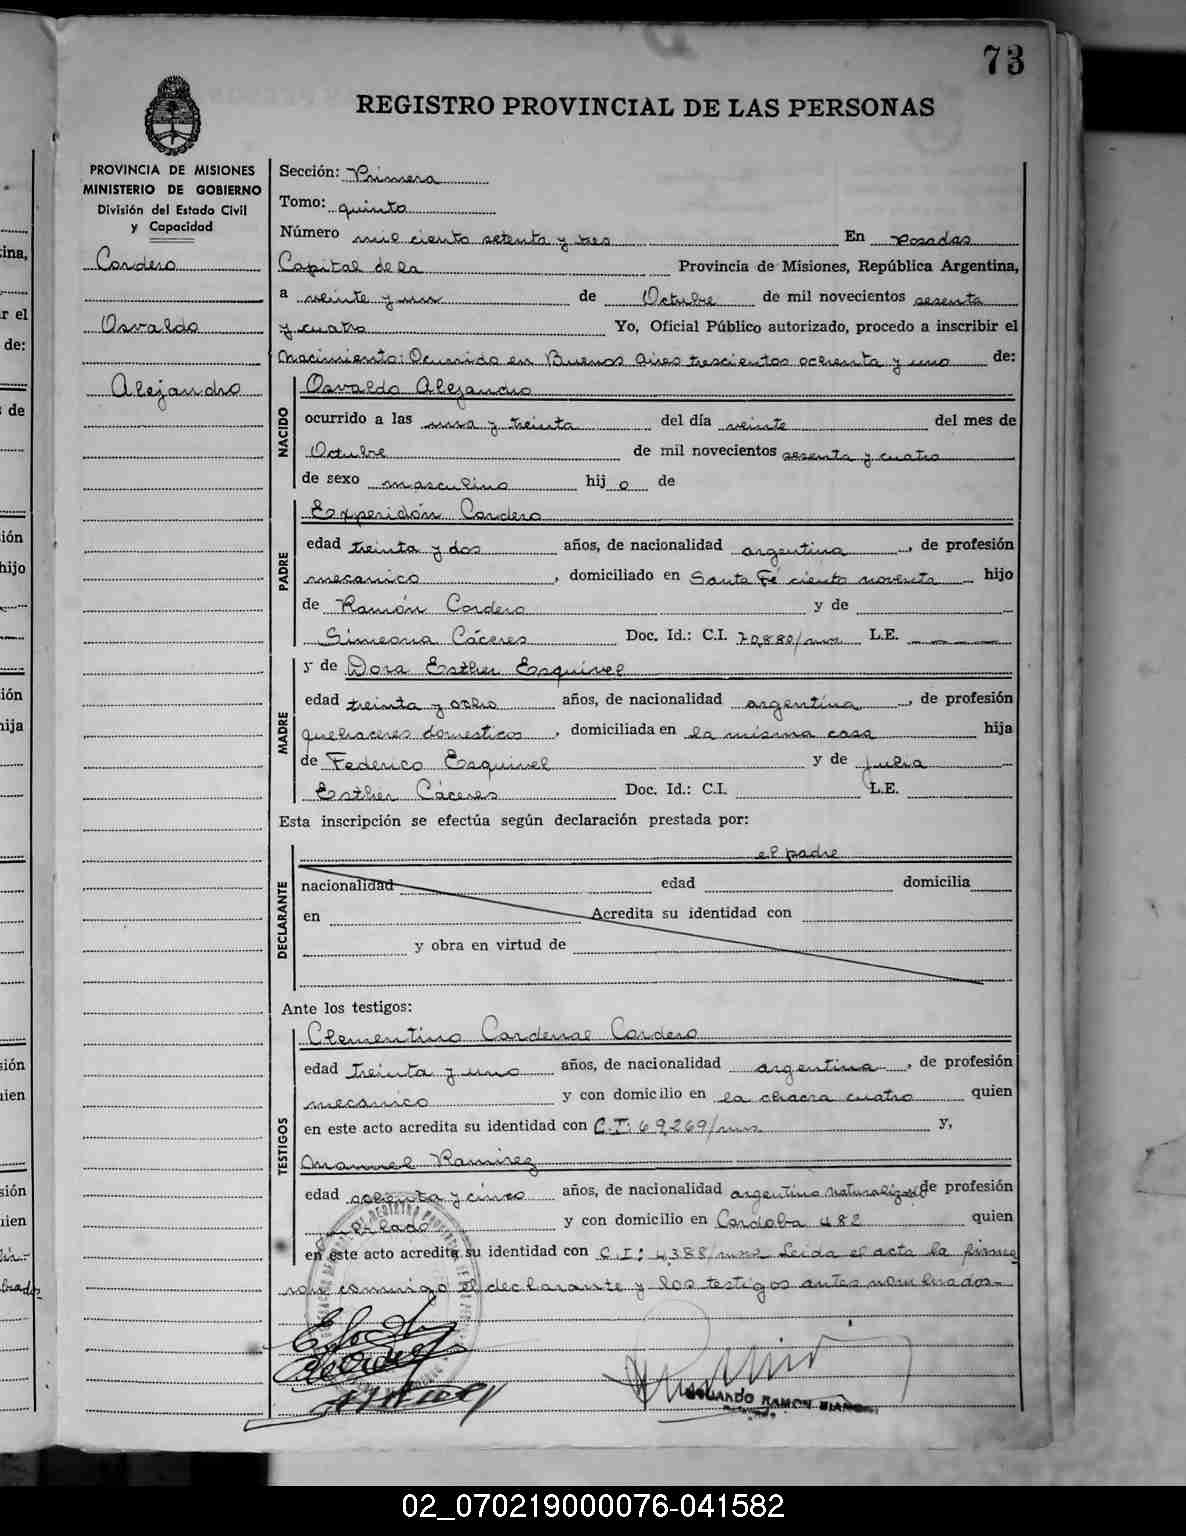 73
REGISTRO PROVINCIAL DE LAS PERSONAS
PROVINCIA DE MISIONES
MINISTERIO DE GOBIERNO
División del Estado Civil
y Capacidad
Cordero
Osvaldo
Alejandro
Sección: Primera
Tomo: quinto
Número mil ciento setenta y tres En Posadas
Capital de la Provincia de Misiones, República Argentina,
a veinte y un de Octubre de mil novecientos sesenta
y cuatro Yo, Oficial Público autorizado, procedo a inscribir el
Nacimiento: Ocurrido en Buenos Aires trescientos ochenta y uno de:
NACIDO
Osvaldo Alejandro
ocurrido a las una y treinta del día veinte del mes de
Octubre de mil novecientos sesenta y cuatro
de sexo masculino hij o de
PADRE
Experidón Cordero
edad treinta y dos años, de nacionalidad argentina, de profesión
mecanico, domiciliado en Santa Fé ciento noventa hijo
de Ramón Cordero y de
Simeona Cáceres Doc. Id.: C.I. 70,880/mnes L.E.
MADRE
y de Dora Esther Esquivel
edad treinta y ocho años, de nacionalidad argentina, de profesión
quehaceres domesticos, domiciliada en la misma casa hija
de Federico Esquivel y de Julia
Esther Cáceres Doc. Id.: C.I. L.E.
Esta inscripción se efectúa según declaración prestada por:
DECLARANTE
el padre
nacionalidad edad domicilia
en Acredita su identidad con
y obra en virtud de
Ante los testigos:
TESTIGOS
Clementino Cardenal Cordero
edad treinta y uno años, de nacionalidad argentina, de profesión
mecánico y con domicilio en la chacra cuatro quien
en este acto acredita su identidad con C.I: 69,269/mns y,
Manuel Ramirez
edad ochenta y cinco años, de nacionalidad argentino naturalizado de profesión
jubilado y con domicilio en Cordoba 482 quien
en este acto acredita su identidad con C.I: 4,388/mns Leida el acta la firma
ron conmigo el declarante y los testigos antes nombrados.-
RAMON
02_070219000076-041582